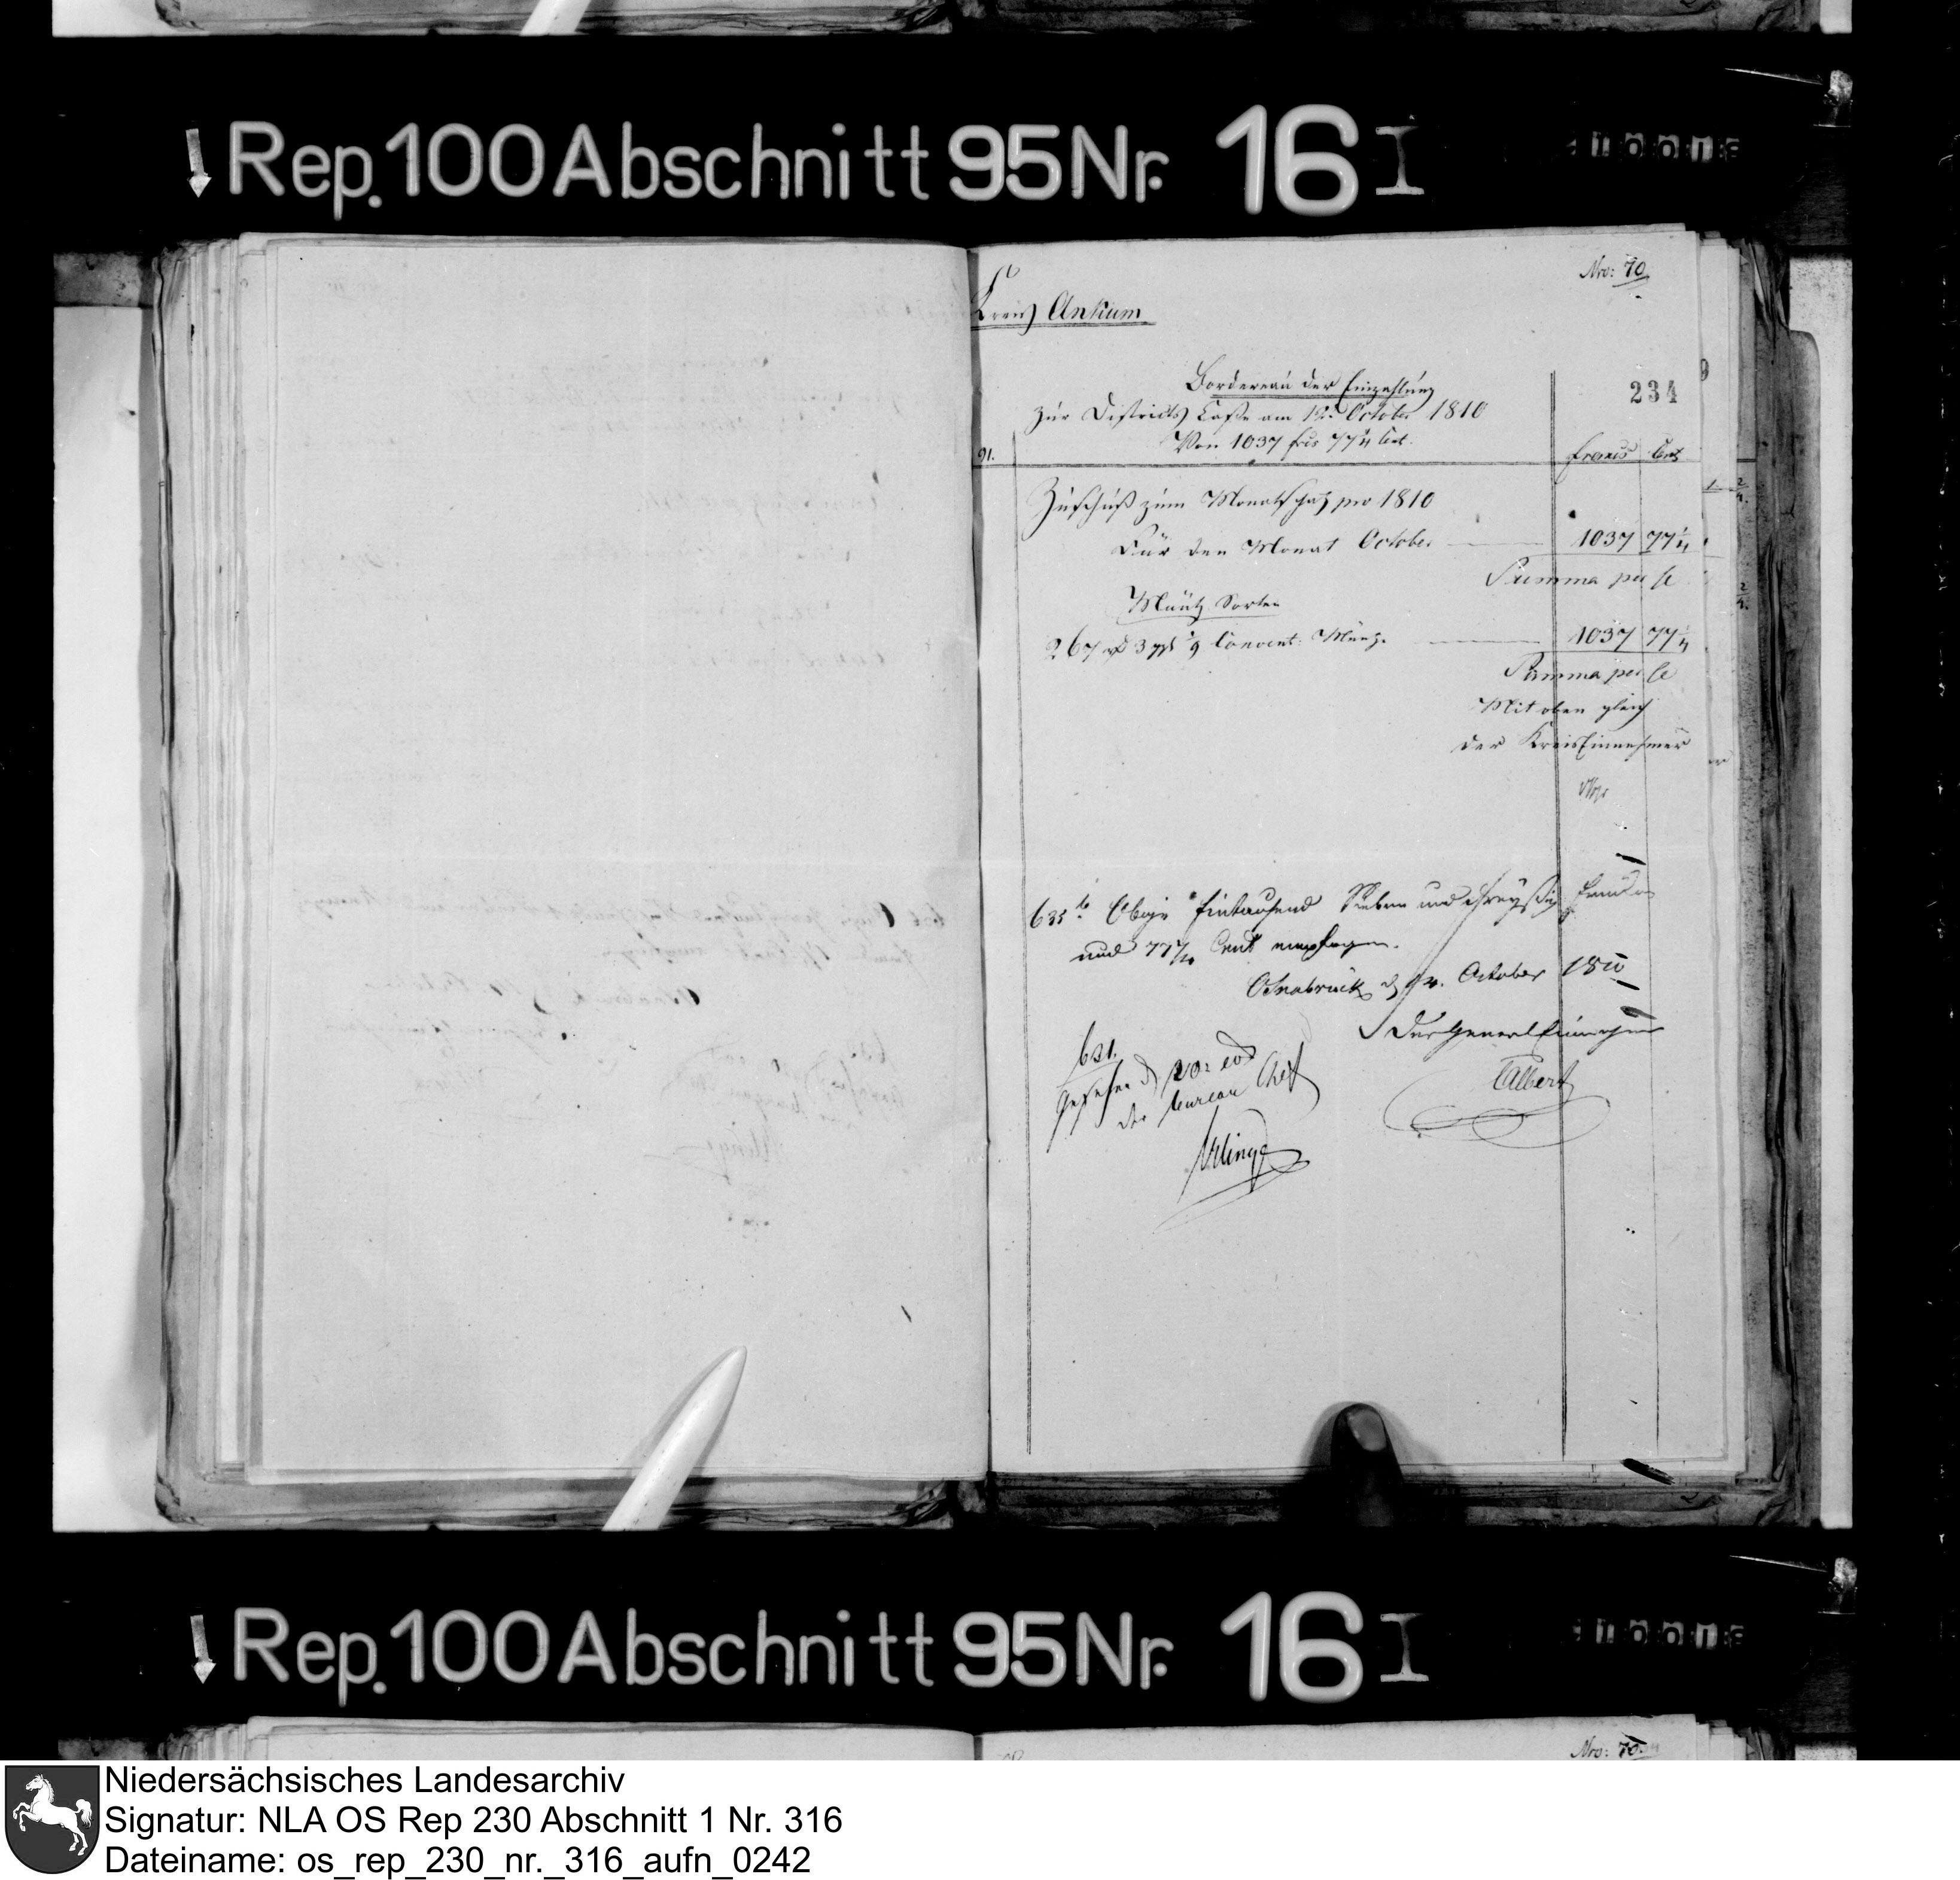 Rep. 100 Abschnitt 95 Nr. 16 I
Nro: 70
Kreis Ankum
234
Bordereau der Einzahlung
zur Districts Casse am 12ten October 1810
Von 1037 frcs 77 1/4 Cent.
91.
francs Cent
Zuschuß zum Monatschatz pro 1810
Für den Monat October 1037 77 1/4
Summa per se
Müntz Sorten
267 rt 3 ggl 1/9 Convent: Münz. 1037 77 1/4
Summa per se
Mit oben gleich
Der Kreis Einnehmer
635 Obige Eintausend Sieben und dreyßig
und 77 Cent empfangen.
Osnabrück d 12. October 1810
Der General Einnehmer
Albert
621.
gesehen d 20:
der bureau Chef
Rep. 100 Abschnitt 95 Nr. 16 I
Nro: 70.
Niedersächsisches Landesarchiv
Signatur: NLA OS Rep 230 Abschnitt 1 Nr. 316
Dateiname: os_rep_230_nr._316_aufn_0242